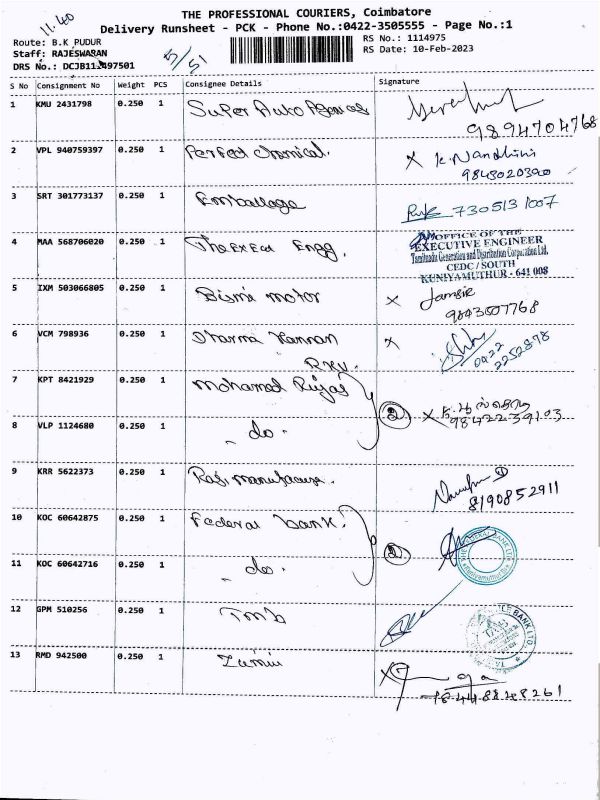 11.40
THE PROFESSIONAL COURIERS, Coimbatore
Delivery Runsheet - PCK - Phone No.:0422-3505555 - Page No.:1
Route: B.K PUDUR
RS No.: 1114975
Staff: RAJESWARAN
RS Date: 10-Feb-2023
DRS No.: DCJB111497501
S No Consignment No Weight PCS Consignee Details Signature
1 KMU 2431798 0.250 1 Super Auto Agencies
9894704768
2 VPL 940759397 0.250 1 Perfect chemical. x K. Nandhini
9843020390
3 SRT 301773137 0.250 1 Emballage 7305131007
4 MAA 568706020 0.250 1 Engg.
OFFICE OF THE
EXECUTIVE ENGINEER
Tamilnadu Generation and Distribution Corporation Ltd.
CEDC / SOUTH
KUNIYAMUTHUR - 641 008
5 IXM 503066805 0.250 1 Bismi motor x
9843507768
6 VCM 798936 0.250 1 Kannan x
0422
2252878
7 KPT 8421929 0.250 1 Mohamed
2 x
9842239103
8 VLP 1124680 0.250 1 - do -
9 KRR 5622373 0.250 1
8190852911
10 KOC 60642875 0.250 1 Federal bank.
2
11 KOC 60642716 0.250 1 - do -
12 GPM 510256 0.250 1 Tmb
BANK LTD.
13 RMD 942500 0.250 1